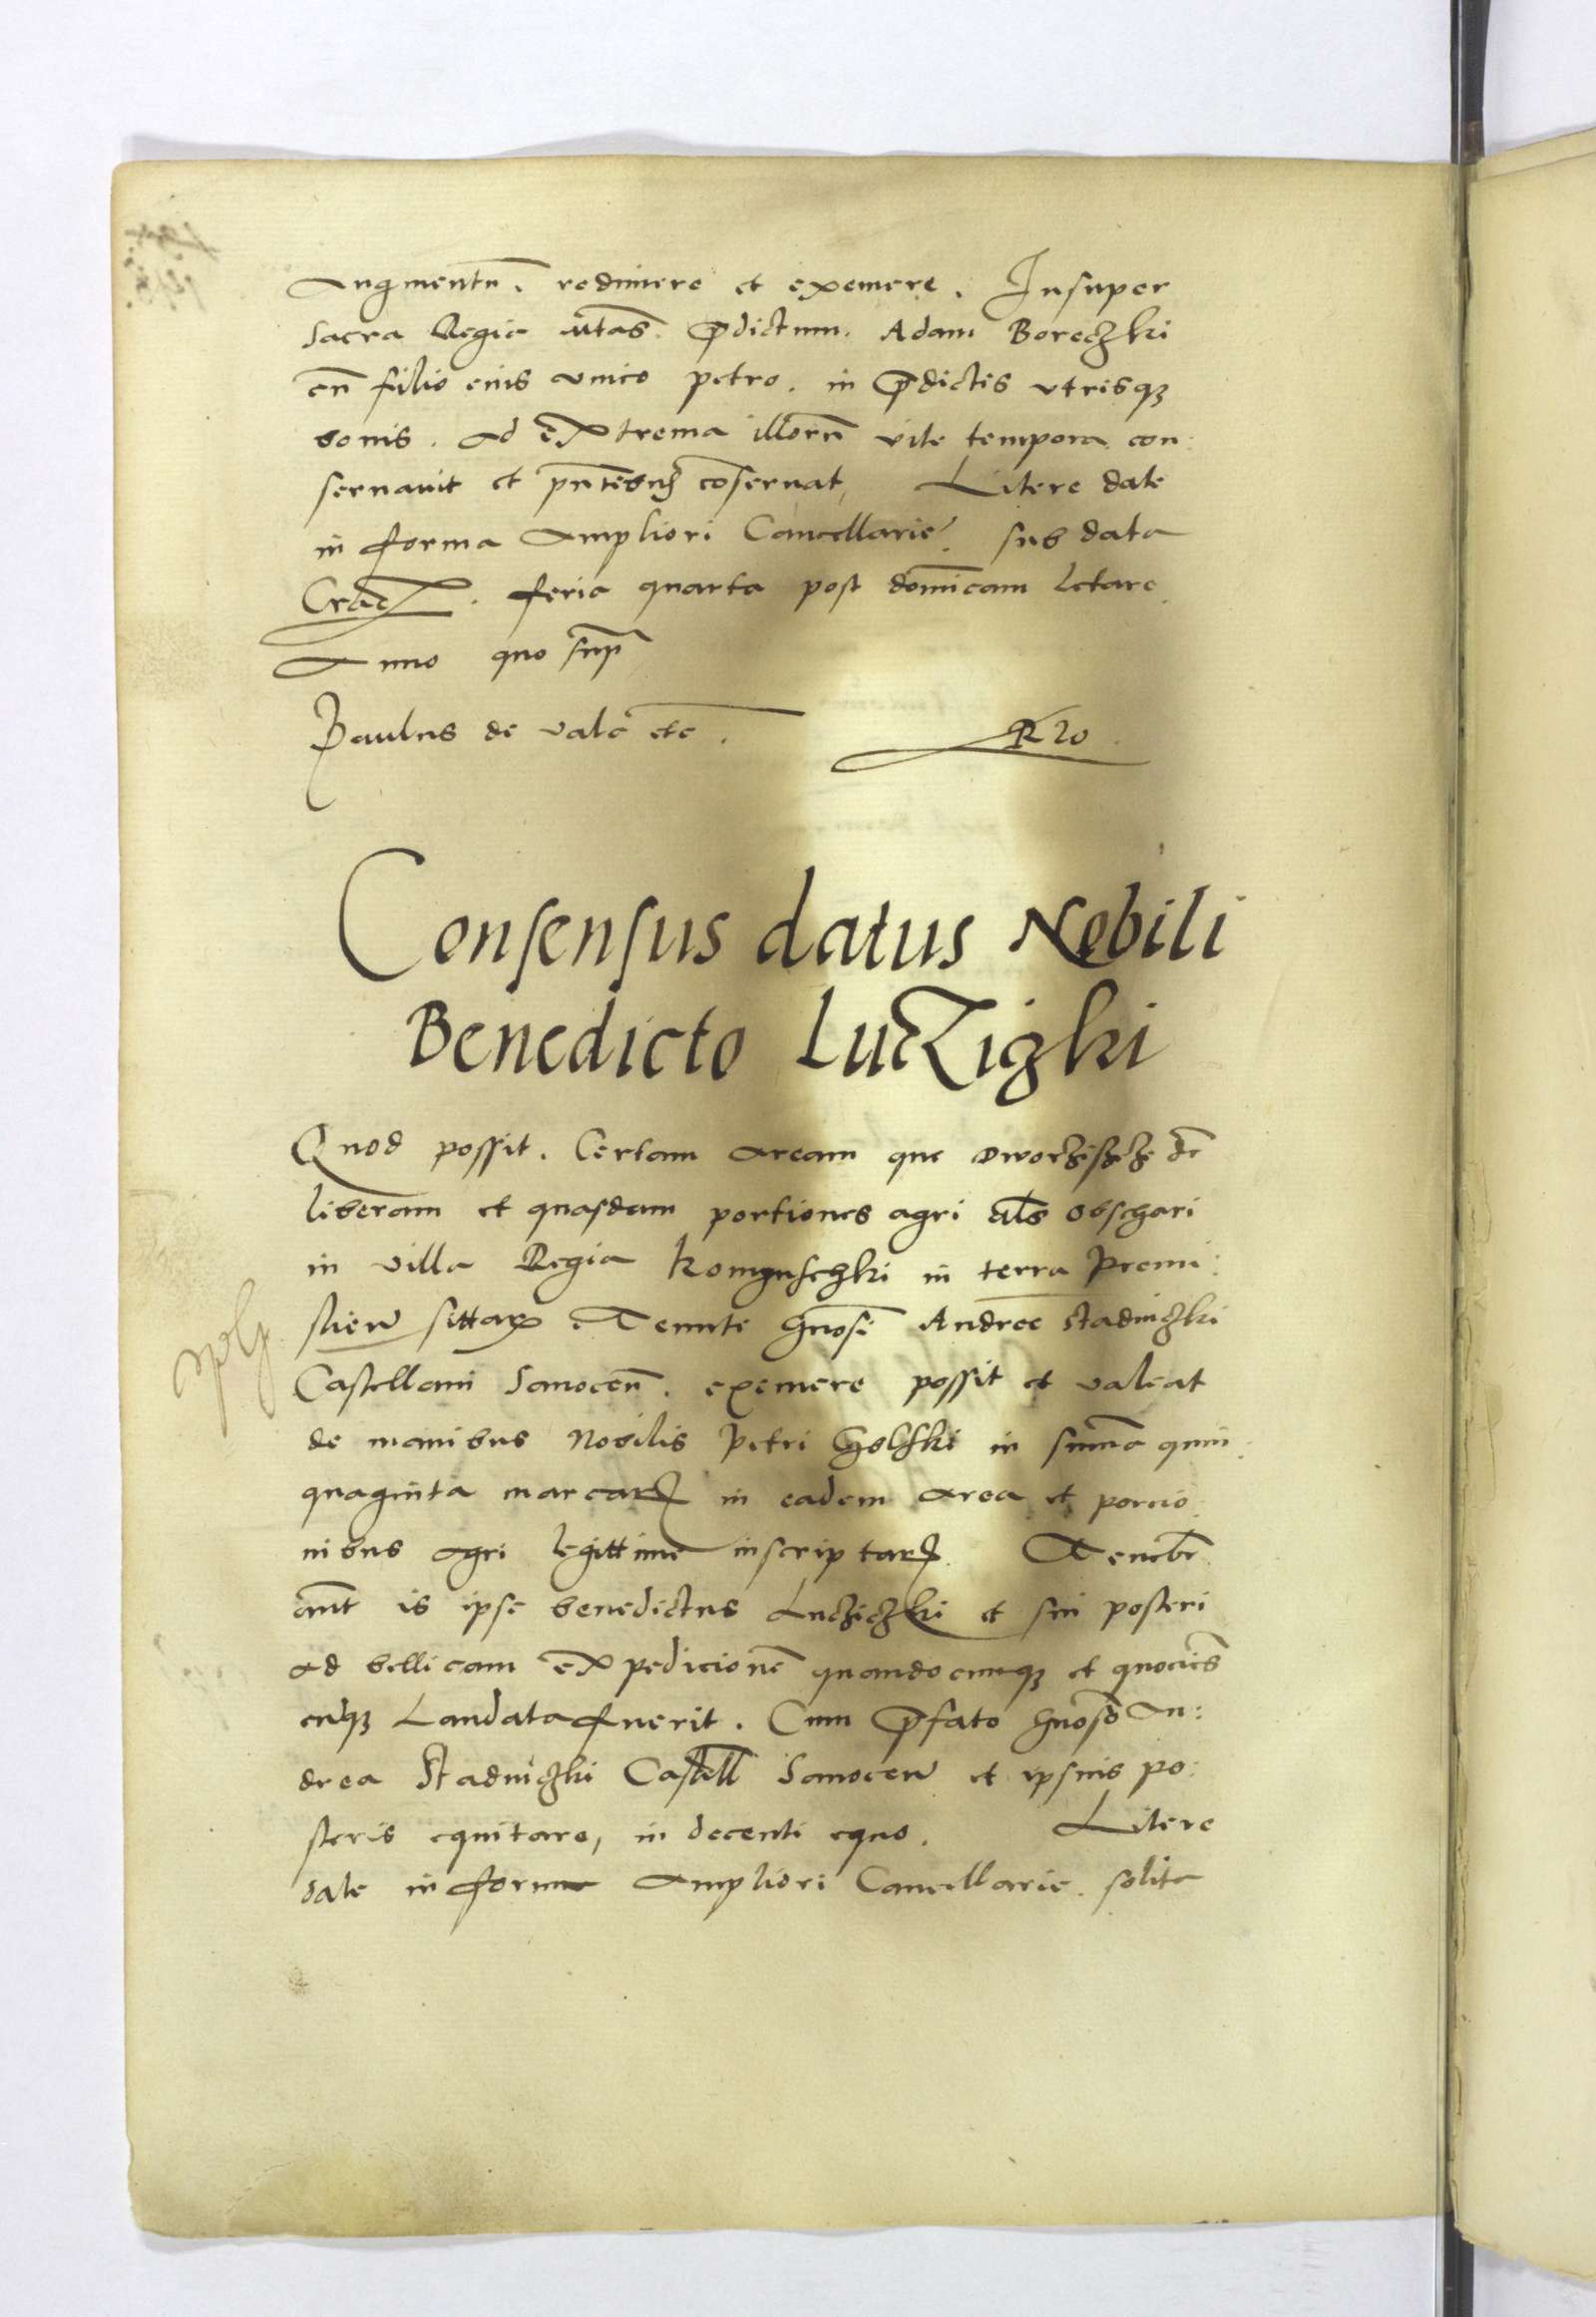 Augmentũ. redimere et eximere. Insuper
Sacra Regia mtãs. p̃dictum. Adam Boreczki
cũ filio eius unico petro. in p̃dictis utrisqʒ
bonis. ad extrema illorũ vite tempora con:
servauit et p̃ntibusqʒ cõservat, Litere date
in forma ampliori Cancellarie. sub data
Crac. feria quarta post dominicam letare.
Anno quo sup̃
Paulus de vale etc.
Consensus datus Nobili
Benedicto Luczizki
Quod possit. Certam aream que dworzisze dc̃
liberam et quasdam portiones agri als̃ obschari
in villa Regia in terra Premi:
slien̄ sittaꝝ. Tenute Gnosi Andree Stadniczki
Castellani Sanocen̄. eximere possit et valeat
de manibus Nobilis Petri Golski in summa quin:
quaginta marcaꝝ in eadem area et porcio:
nibus agri legittime inscriptaꝝ. Tenebr̃
aũt is ipse benedictus Lucziczki et sui posteri
ad bellicam expedicionẽ quandocunqʒ et quociẽs
cũqʒ Laudata fuerit. Cum p̃fato Gnoso An:
drea Stadniczki Castell Sanocen̄ et ipsius po:
steris equitare, in decenti equo. Litere
date in forma ampliori Cancellarie. solita